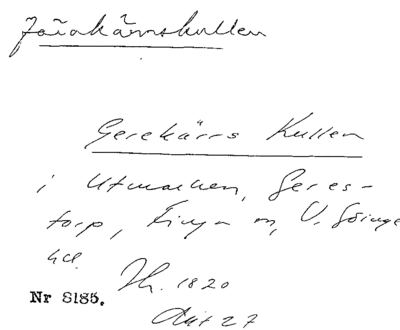 Gerekärrs Kullen
i Utmarken, Geres-
torp, Finja sn, V. Göinge
hd.
Nr 8185.
Th. 1820
Akt 27